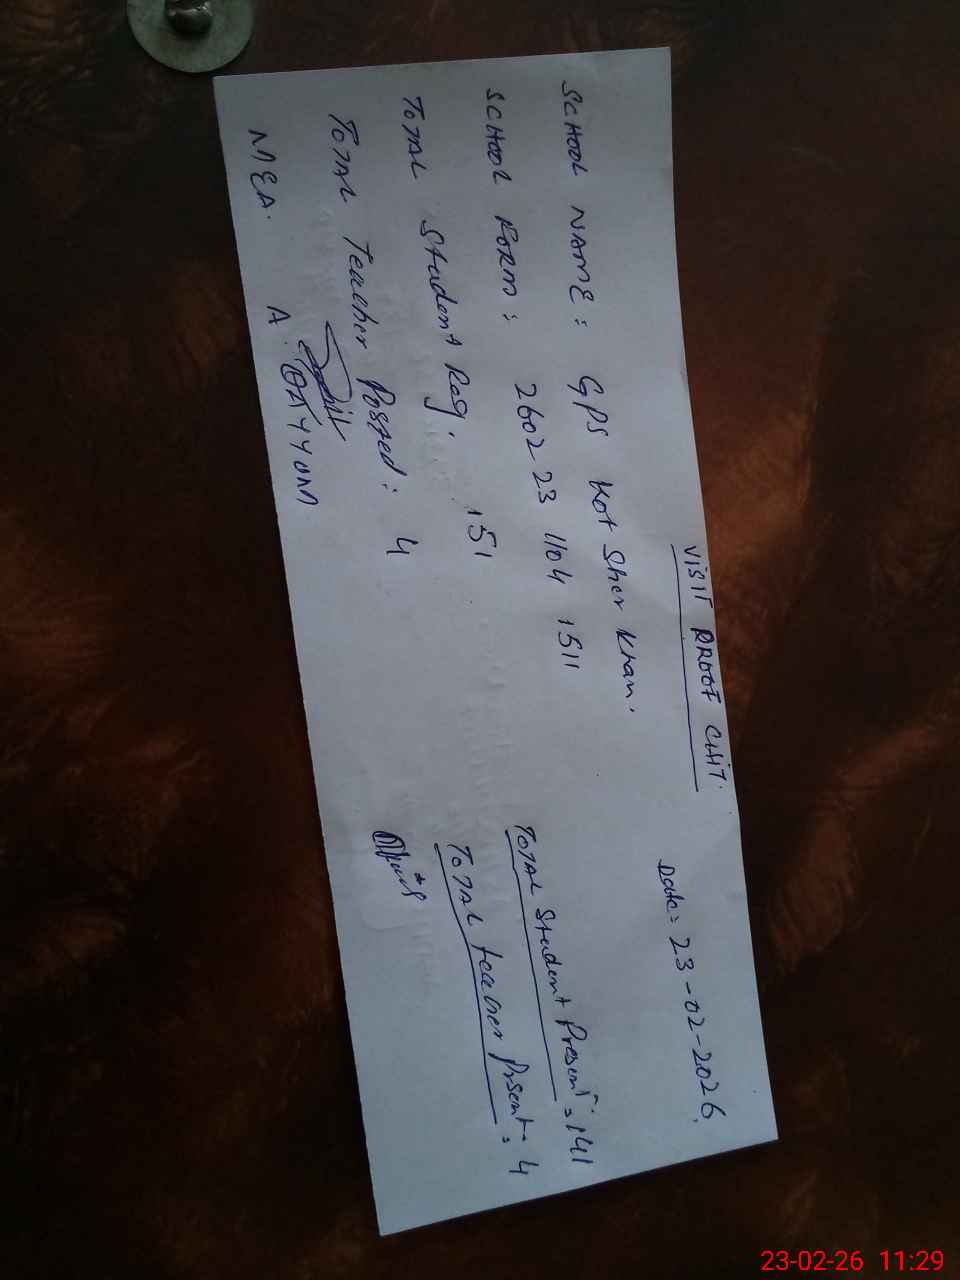 VISIT PROOF CHIT.
Date = 23-02-2026.
SCHOOL NAME : GPS Kot Sher Khan.
SCHOOL FORM : 26022311041511
TOTAL Student Present = 141
TOTAL Student Reg. 151
TOTAL teacher Present = 4
TOTAL Teacher Posted : 4
MEA. A. QAYYUM
23-02-26 11:29